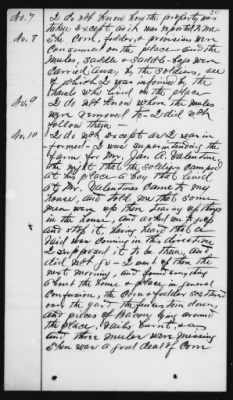 No. 7 I do not know how the property was
taken except as it was reported to me
No. 8 The Corn, fodder, & provisions were
consumed on the place and the
mules, saddle & saddle-bags were
carried away by the soldiers, all
of which I was informed by the
hands who lived on the place
No. 9 I do not know where the mules
were removed to - I did not
follow them -
No. 10 I do not except as I was in
formed - I was superintending the
farm for Mr. Jas. A. Valentine
the night that the soldiers camped
at his place a boy that lived
at Mr. Valentines came to my
house and told me that some
men were out there tearing up things
in the house, and asked me to go
and stop it, having heard that a
raid was coming in this direction
I supposed it to be them, and
did not go - I went up there the
next morning, and found everything
about the house & place in general
Confusion, the Corn & fodder scattered
over the yard the fences torn down,
and pieces of Bacon lying around
the place, rails burnt,
and three mules were missing
There was a good deal of Corn